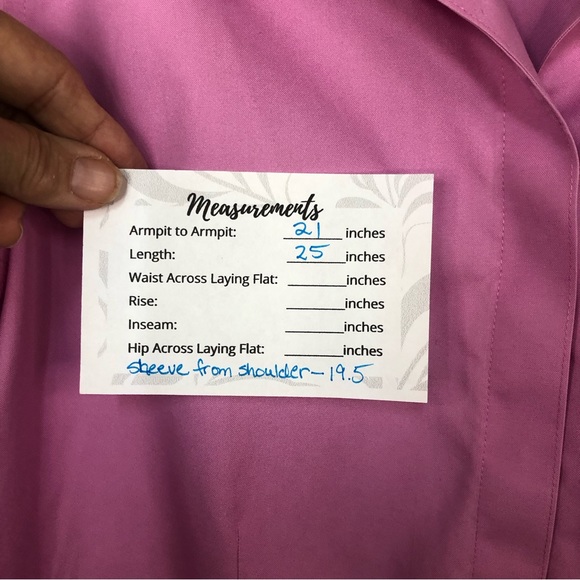 Measurements
Armpit to Armpit: 21 inches
Length: 25 inches
Waist Across Laying Flat: ________inches
Rise: ________inches
Inseam: ________inches
Hip Across Laying Flat: ________inches
sleeve from shoulder - 19.5